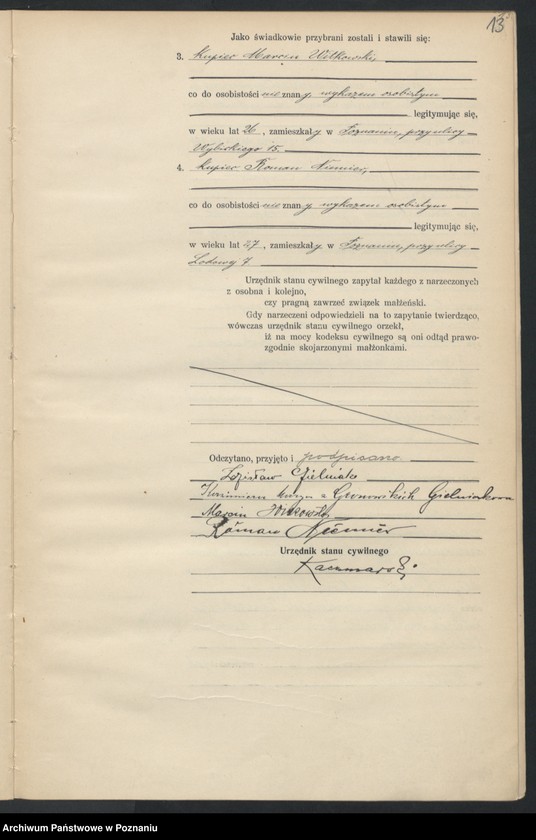 13
Jako świadkowie przybrani zostali i stawili się:
3. kupiec Marcin Witkowski,
co do osobistości nie znany, wykazem osobistym
legitymując się,
w wieku lat 26, zamieszkały w Poznaniu, przy ulicy
Wybickiego 15.
4. kupiec Roman Niemier,
co do osobistości nie znany, wykazem osobistym
legitymując się,
w wieku lat 27, zamieszkały w Poznaniu, przy ulicy
Lodowej 7.
Urzędnik stanu cywilnego zapytał każdego z narzeczonych
z osobna i kolejno,
czy pragną zawrzeć związek małżeński.
Gdy narzeczeni odpowiedzieli na to zapytanie twierdząco,
wówczas urzędnik stanu cywilnego orzekł,
iż na mocy kodeksu cywilnego są oni odtąd prawo-
zgodnie skojarzonymi małżonkami.
Odczytano, przyjęto i podpisano
Zdzisław
z Gronowskich
Marcin
Roman Niemier
Urzędnik stanu cywilnego
Archiwum Państwowe w Poznaniu